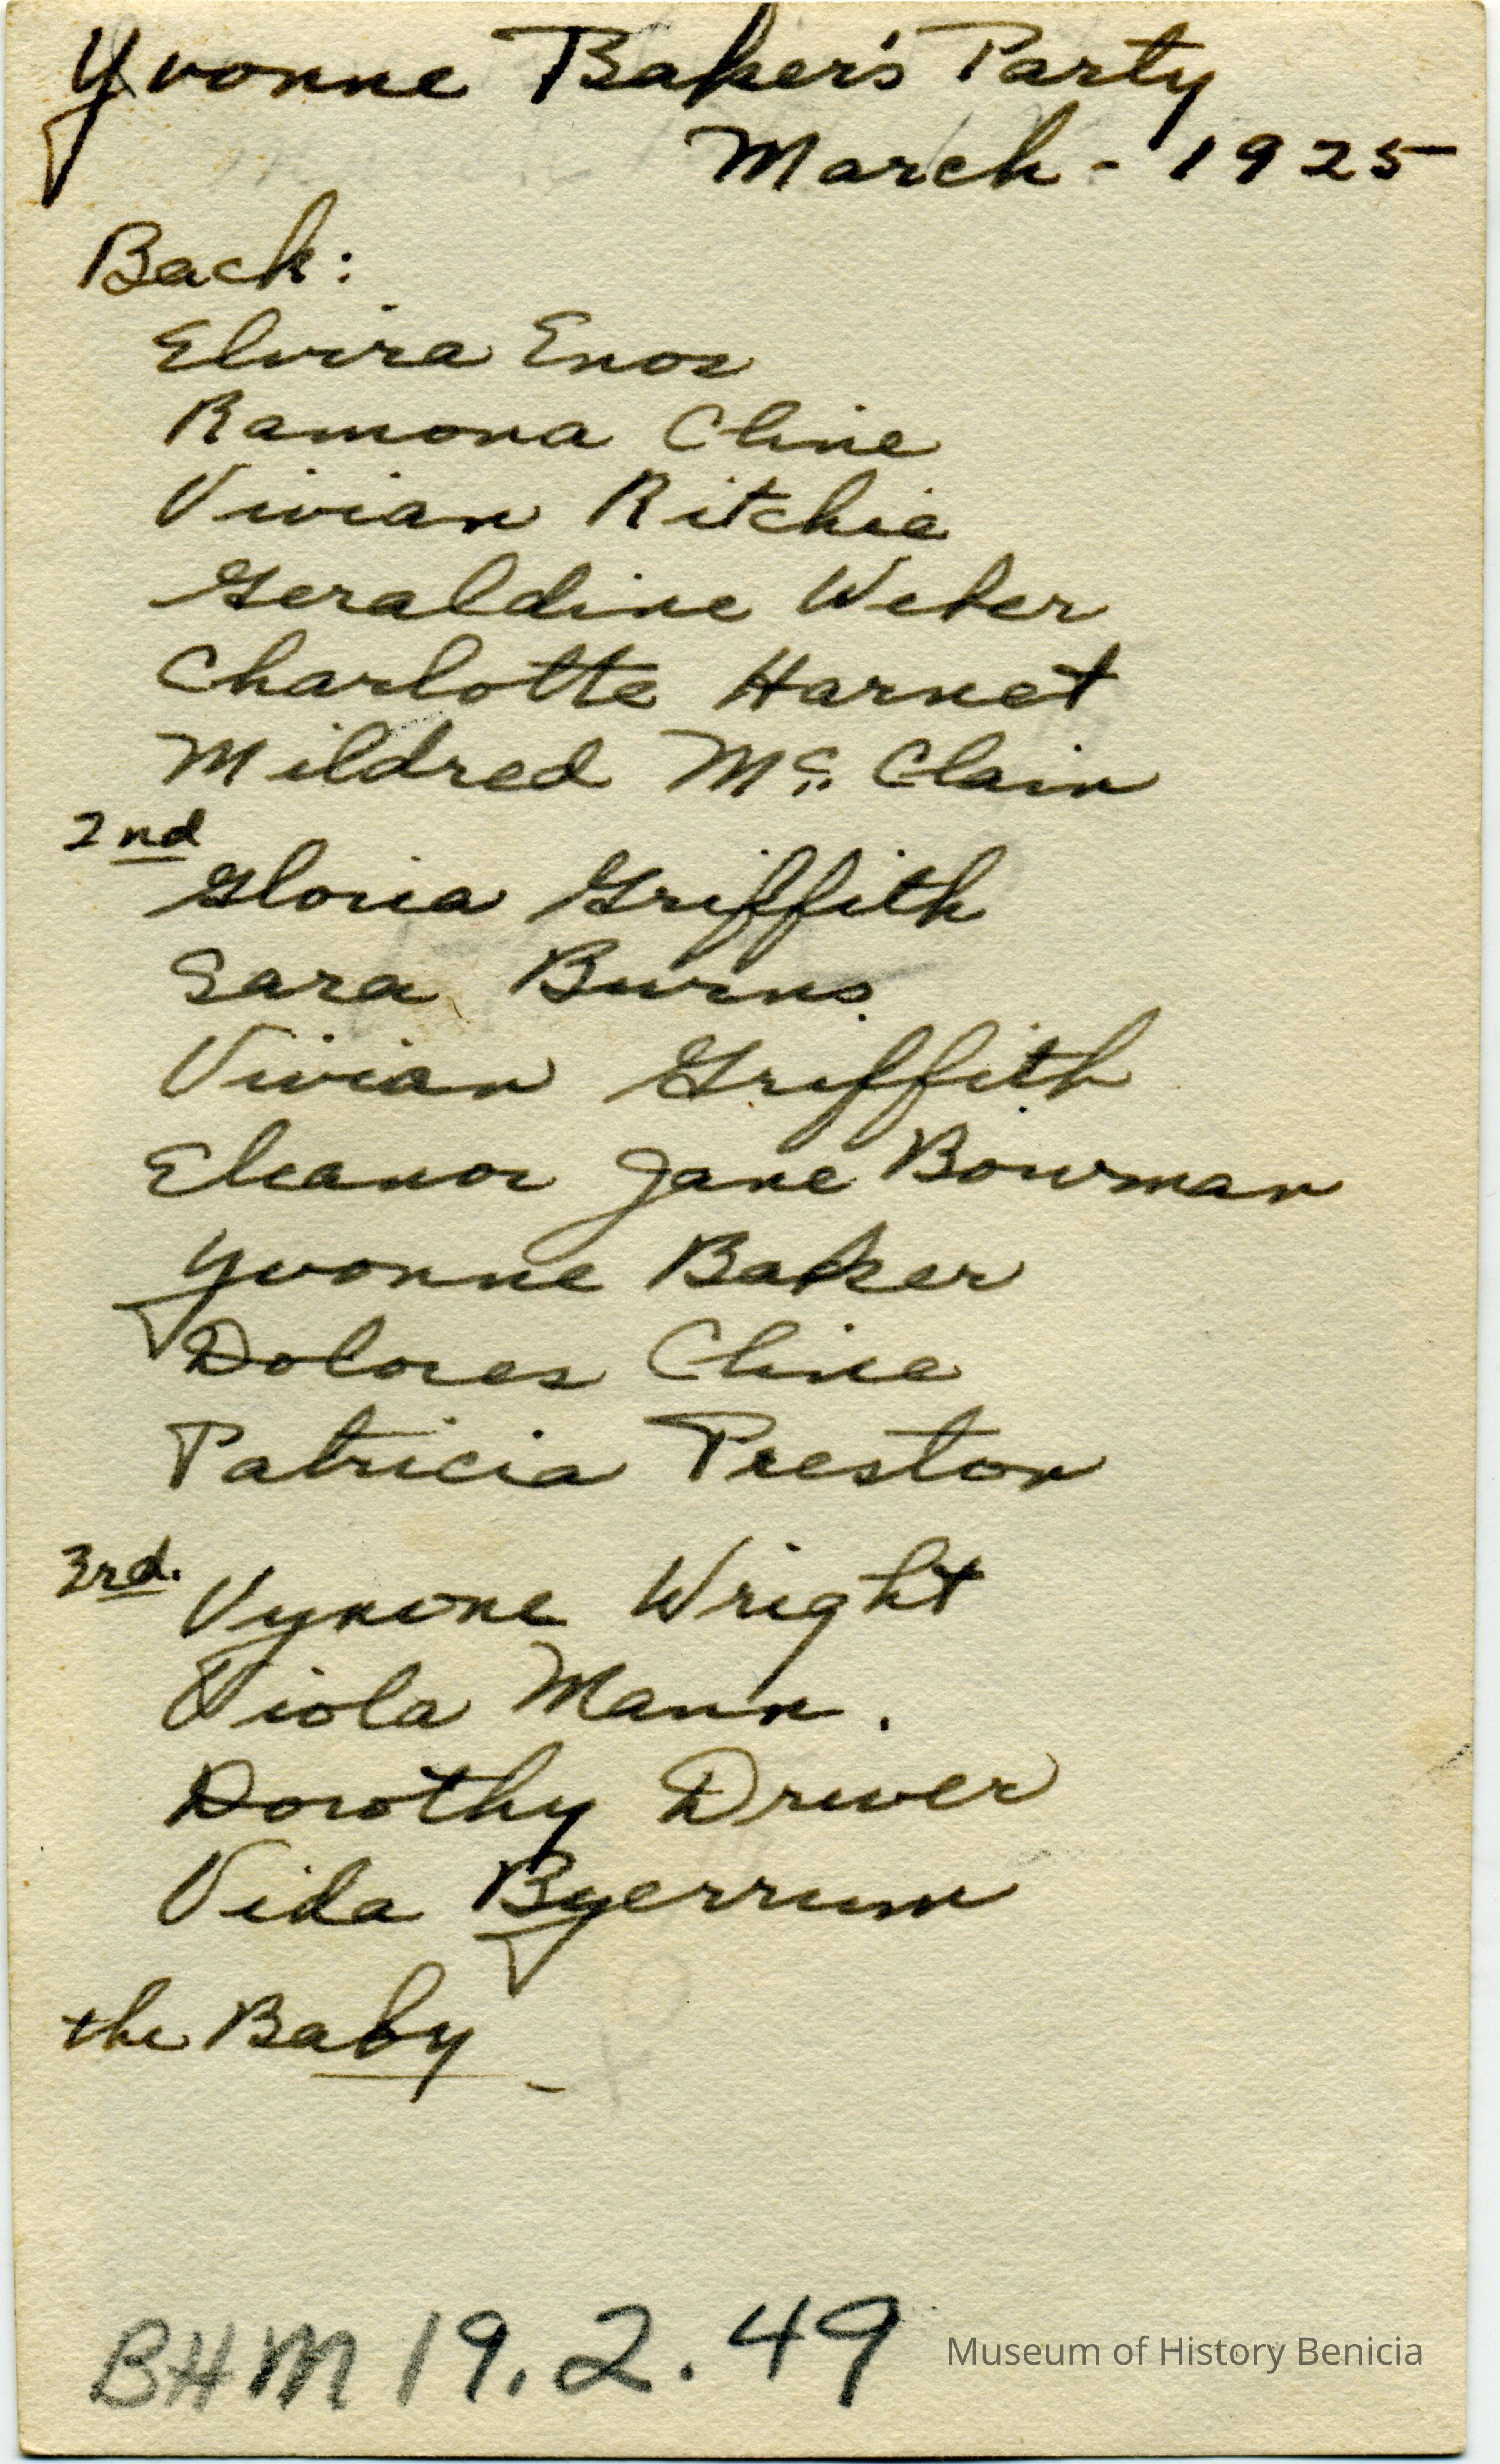 Yvonne Baker's Party
March - 1925
Back:
Elvira Enos
Ramona Cline
Vivian Ritchie
Geraldine Weber
Charlotte Harnet
Mildred Mc. Clain
2nd
Gloria Griffith
Sara Burns
Vivian Griffith
Eleanor Jane Bowman
Yvonne Baker
Dolores Cline
Patricia Preston
3rd.
Vynone Wright
Viola Mann.
Dorothy Driver
Vida Byerrum
the Baby -
BHM 19.2.49
Museum of History Benicia